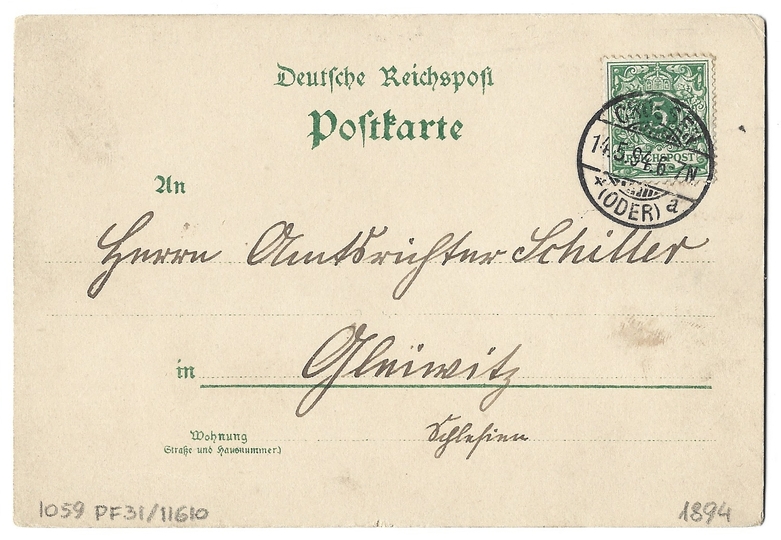 Deutsche Reichspost
Postkarte
5
REICHSPOST
CROSSEN
14.5.94.6-7N
* (ODER) a
An
Herrn Amtsrichter Schiller
in Gleiwitz
Schlesien
Wohnung
(Straße und Hausnummer)
1059 PF31/11610
1894